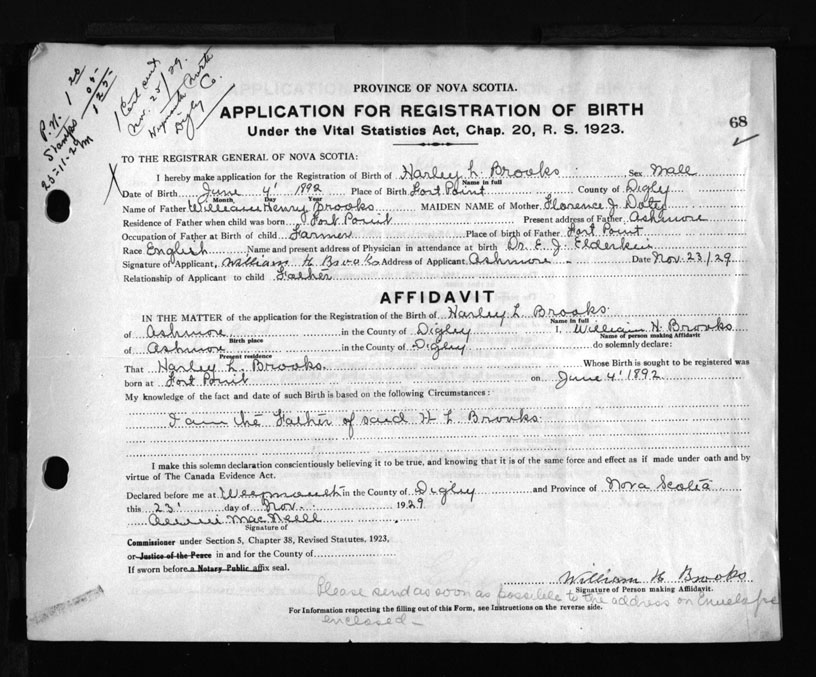 P.N. 1 20
Stamps 05
1 25
25-11-29 M
1 Cert sent
Nov. 25/29.
Weymouth North
Digby Co.
PROVINCE OF NOVA SCOTIA.
APPLICATION FOR REGISTRATION OF BIRTH
Under the Vital Statistics Act, Chap. 20, R. S. 1923.
68
TO THE REGISTRAR GENERAL OF NOVA SCOTIA:
I hereby make application for the Registration of Birth of Harley L. Brooks Sex Male
Name in full
Date of Birth June 4' 1892 Place of Birth Fort Point County of Digby
Month Day Year
Name of Father William Henry Brooks MAIDEN NAME of Mother Florence J. Doty
Residence of Father when child was born Fort Point Present address of Father Ashmore
Occupation of Father at Birth of child Farmer Place of birth of Father Fort Point
Race English Name and present address of Physician in attendance at birth Dr. E. J. Elderkin
Signature of Applicant, William H Brooks Address of Applicant Ashmore Date Nov. 23/29
Relationship of Applicant to child Father
AFFIDAVIT
IN THE MATTER of the application for the Registration of the Birth of Harley L. Brooks
Name in full
of Ashmore in the County of Digby I, William H. Brooks
Birth place Name of person making Affidavit
of Ashmore in the County of Digby do solemnly declare:
Present residence
That Harley L. Brooks Whose Birth is sought to be registered was
born at Fort Point on June 4' 1892
My knowledge of the fact and date of such Birth is based on the following Circumstances:
I am the Father of said H L Brooks.
I make this solemn declaration conscientiously believing it to be true, and knowing that it is of the same force and effect as if made under oath and by
virtue of The Canada Evidence Act.
Declared before me at Weymouth in the County of Digby and Province of Nova Scotia
this 23' day of Nov. 1929
MacNeill
Signature of
Commissioner under Section 5, Chapter 38, Revised Statutes, 1923,
or Justice of the Peace in and for the County of
If sworn before a Notary Public affix seal.
William H Brooks
Signature of Person making Affidavit.
Please send as soon as possible to the address on Envelope
For Information respecting the filling out of this Form, see Instructions on the reverse side.
enclosed-